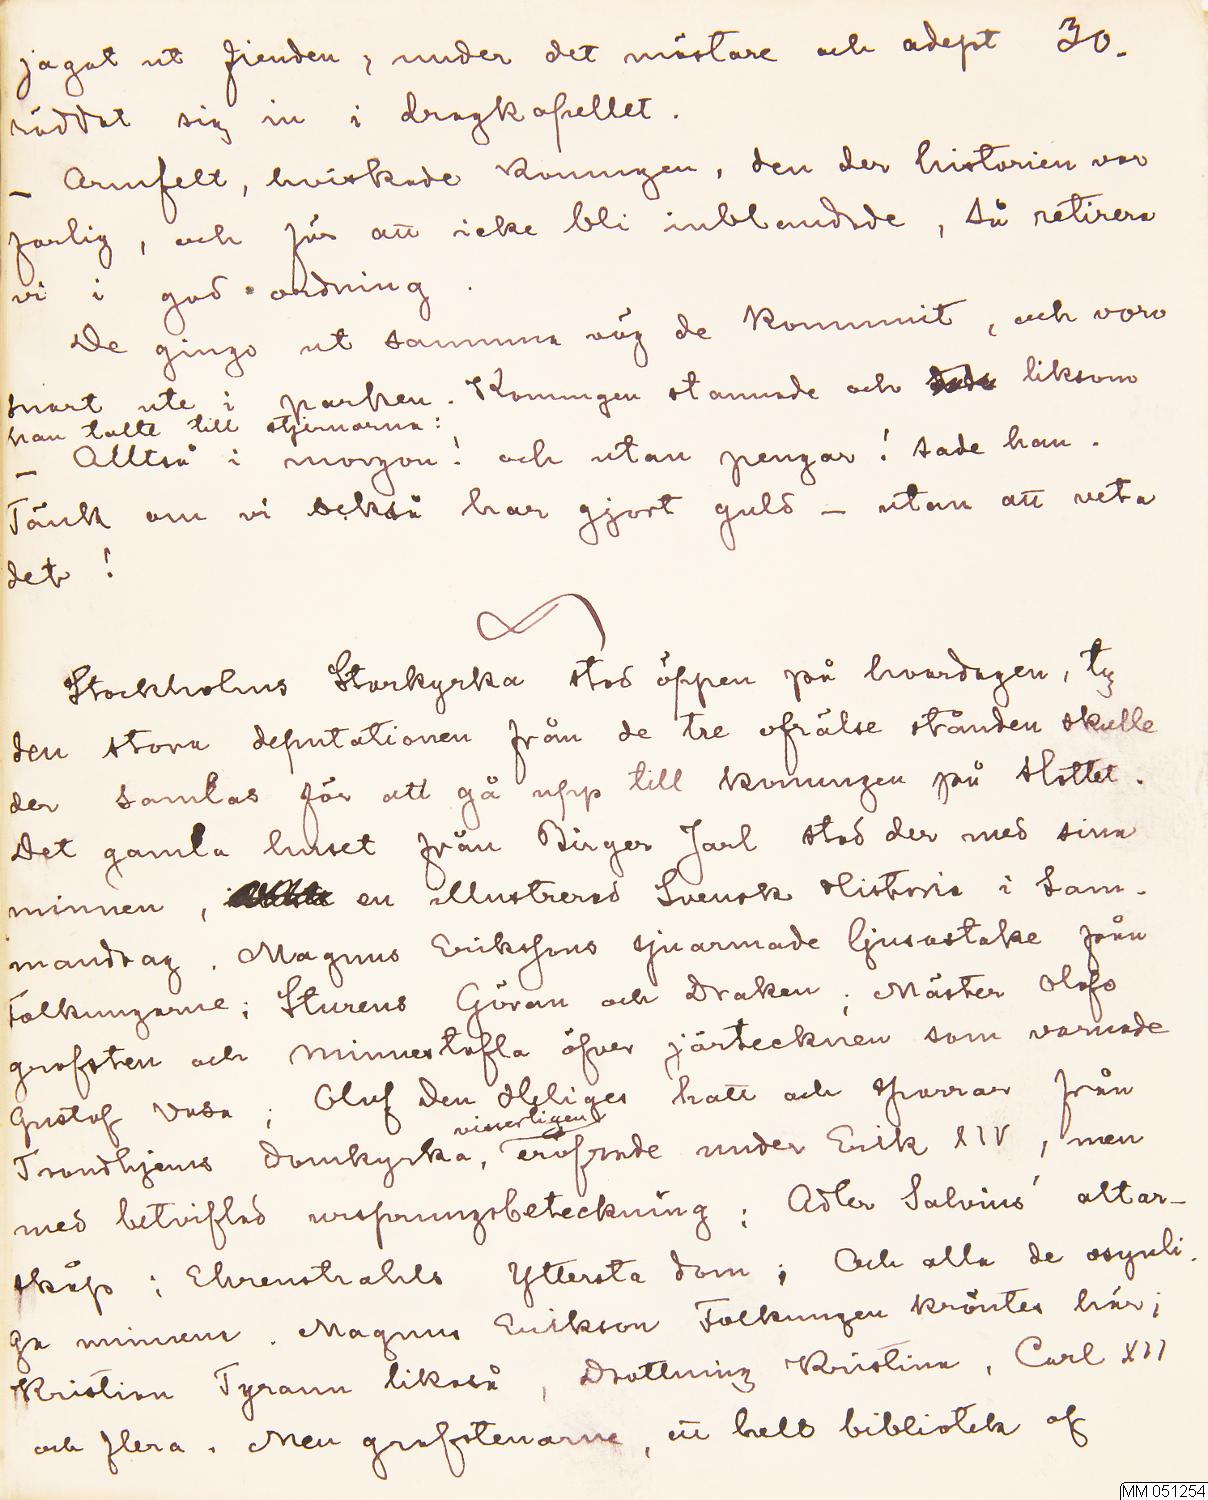 jagat ut fienden, under det mästare och adept 30.
räddat sig in i dragkapellet.
– Armfelt, hviskade Konungen, den der historien var
farlig, och för att icke bli inblandade, så retirera
vi i god ordning.
De gingo ut samma väg de kommit, och voro
snart ute i parken. Konungen stannade och liksom
han talte till stjernorna:
– Alltså i morgon! och utan pengar! sade han.
Tänk om vi också har gjort guld – utan att veta
det!
Stockholms Storkyrka stod öppen på hvardagen, ty
den stora deputationen från de tre ofrälse stånden skulle
der samlas för att gå upp till konungen på slottet.
Det gamla huset från Birger Jarl stod der med sina
minnen, en illustrerad Svensk Historia i sam-
mandrag. Magnus Erikssons sjuarmade ljusastake från
Folkungarne; Sturens Göran och Draken; Mäster Olofs
grafsten och minnestafla öfver järtecknen som varnade
Gustaf Vasa; Oluf den Heliges hatt och sporrar från
visserligen
Trondhjems domkyrka, eröfrade under Erik XIV, men
med betviflad ursprungsbeteckning; Adler Salvius' altar-
skåp; Ehrenstrahls Yttersta dom; Och alla de osynli-
ga minnena. Magnus Erikson Folkungen kröntes här;
Kristian Tyrann likaså, Drottning Kristina, Carl XII
och flera. Men grafstenarne, ett helt bibliotek af
MM 051254